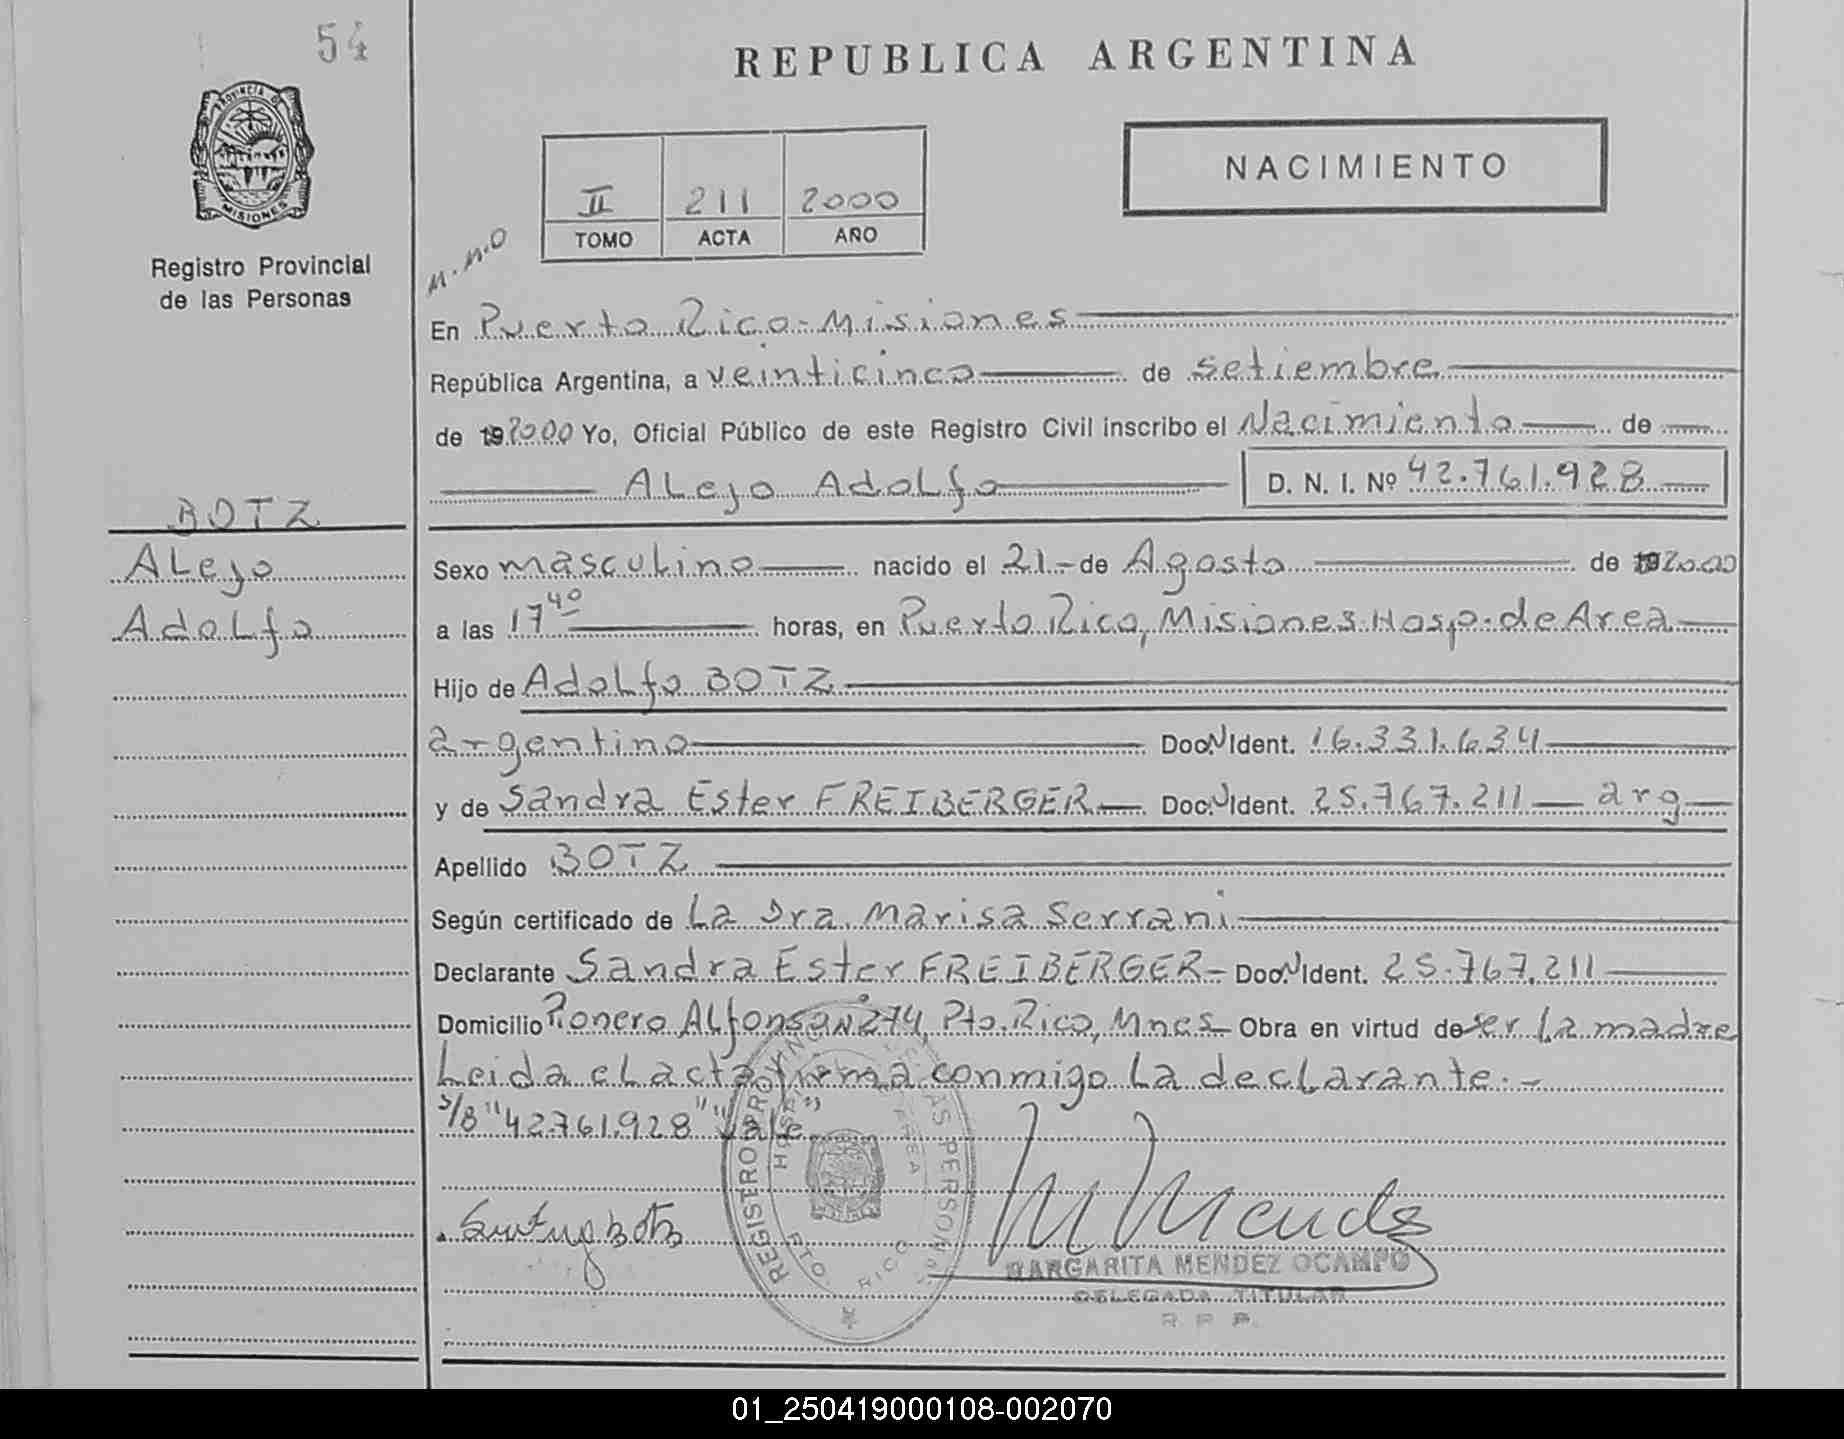 54
REPUBLICA ARGENTINA
PROVINCIA DE
MISIONES
Registro Provincial
de las Personas
NACIMIENTO
II 211 2000
TOMO ACTA AÑO
M.M.O
En Puerto Rico-Misiones
República Argentina, a veinticinco de setiembre
de 19 2000 Yo, Oficial Público de este Registro Civil inscribo el Nacimiento de
Alejo Adolfo D. N. I. Nº 42.761.928
BOTZ
Alejo
Adolfo
Sexo masculino nacido el 21- de Agosto de 19 2000
a las 17 40 horas, en Puerto Rico, Misiones-Hosp. de Area
Hijo de Adolfo BOTZ
argentino Doc.N Ident. 16.331.634
y de Sandra Ester FREIBERGER Doc.N Ident. 25.767.211 arg
Apellido BOTZ
Según certificado de La Dra. Marisa Serrani
Declarante Sandra Ester FREIBERGER- Doc.N Ident. 25.767.211
Domicilio Pionero Alfonsa Nº 274, Pto. Rico, Mnes- Obra en virtud de ser la madre
Leida el acta firma conmigo la declarante.-
S/B "42.761.928" "Vale"
REGISTRO PROVINCIAL DE LAS PERSONAS
HOSPITAL DE AREA
PTO. RICO
M Mendez
MARGARITA MENDEZ OCAMPO
DELEGADA TITULAR
R. P. P.
01_250419000108-002070